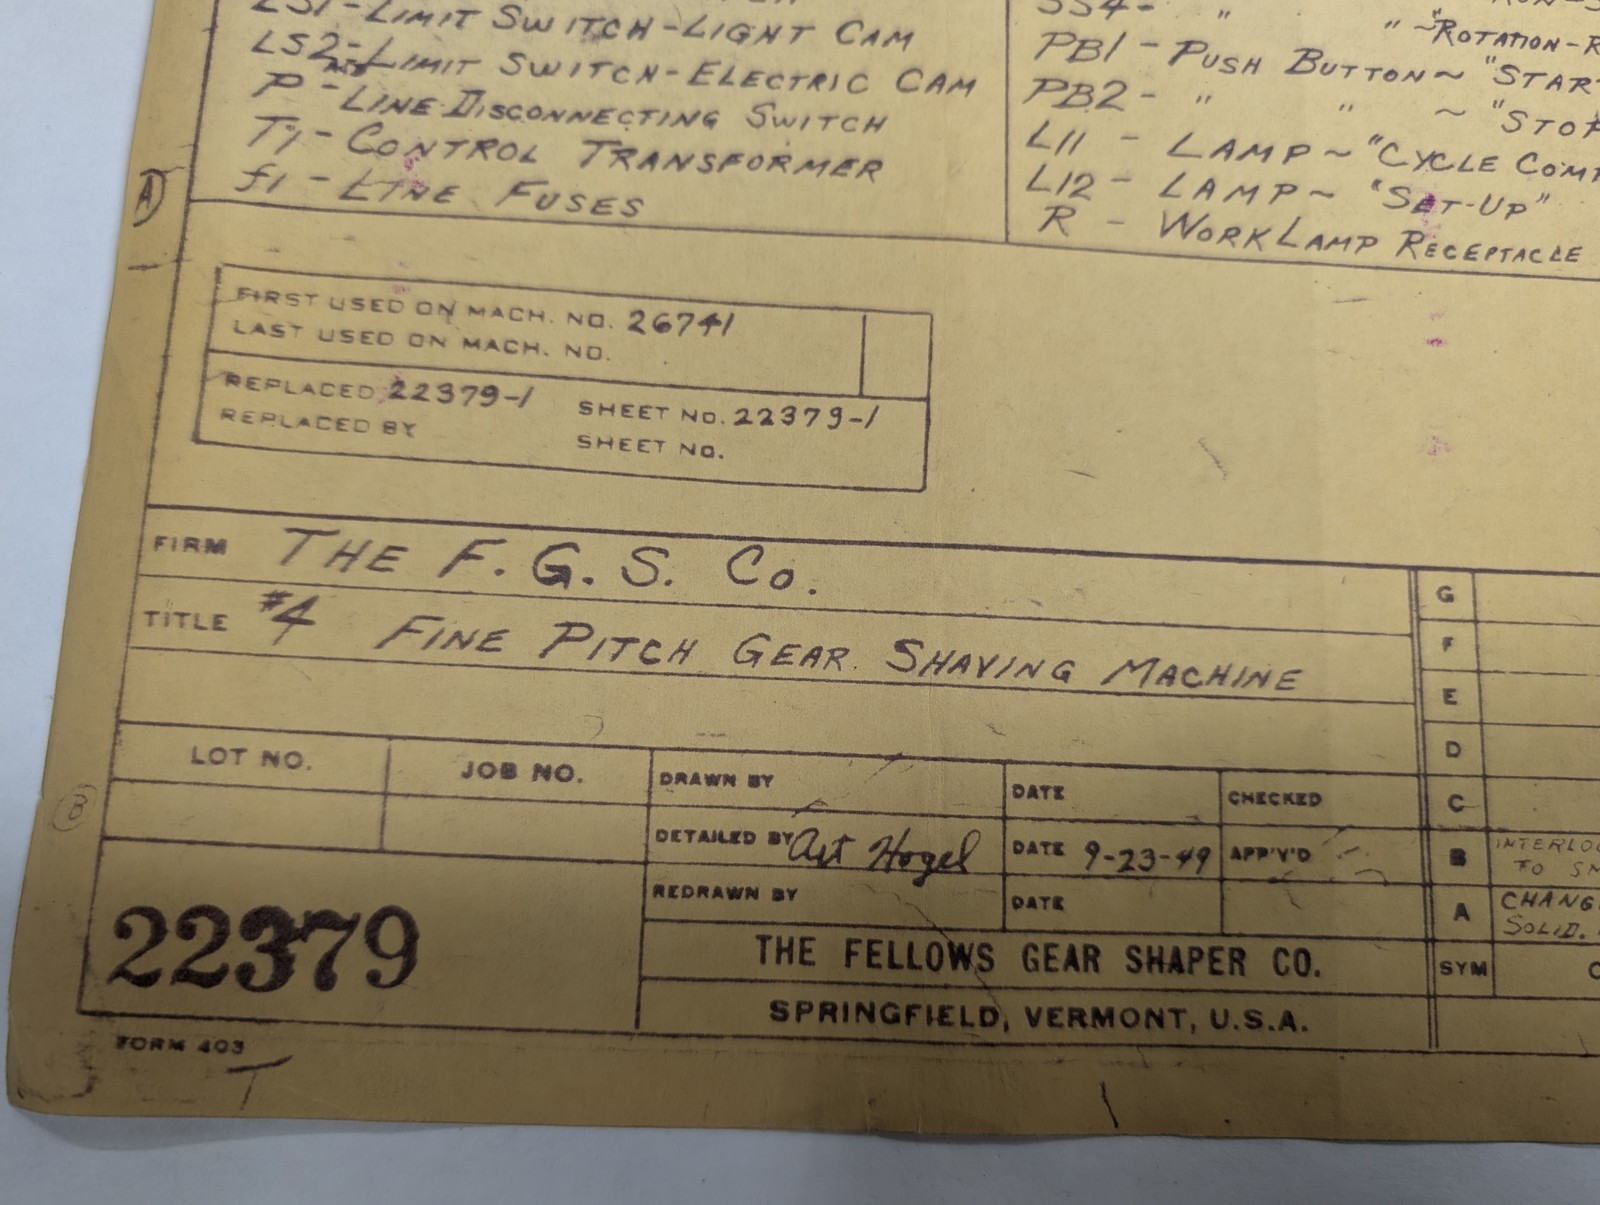 LS1-LIMIT SWITCH-LIGHT CAM
LS2-LIMIT SWITCH-ELECTRIC CAM
P - LINE DISCONNECTING SWITCH
T1 - CONTROL TRANSFORMER
f1 - LINE FUSES
SS4- " " ~"ROTATION-R
PB1 - PUSH BUTTON ~ "STAR
PB2 - " " ~ "STOP
L11 - LAMP ~ "CYCLE COMP
L12 - LAMP ~ "SET-UP"
R - WORK LAMP RECEPTACLE
A
FIRST USED ON MACH. NO. 26741
LAST USED ON MACH. NO.
REPLACED 22379-1 SHEET NO. 22379-1
REPLACED BY SHEET NO.
FIRM THE F. G. S. Co.
TITLE #4 FINE PITCH GEAR SHAVING MACHINE
LOT NO. JOB NO.
DRAWN BY DATE CHECKED
DETAILED BY Art Hogel DATE 9-23-49 APP'V'D
REDRAWN BY DATE
B
22379
THE FELLOWS GEAR SHAPER CO.
SPRINGFIELD, VERMONT, U.S.A.
FORM 403
G
F
E
D
C
B INTERLOC
TO SM
A CHANG
SOLID.
SYM C